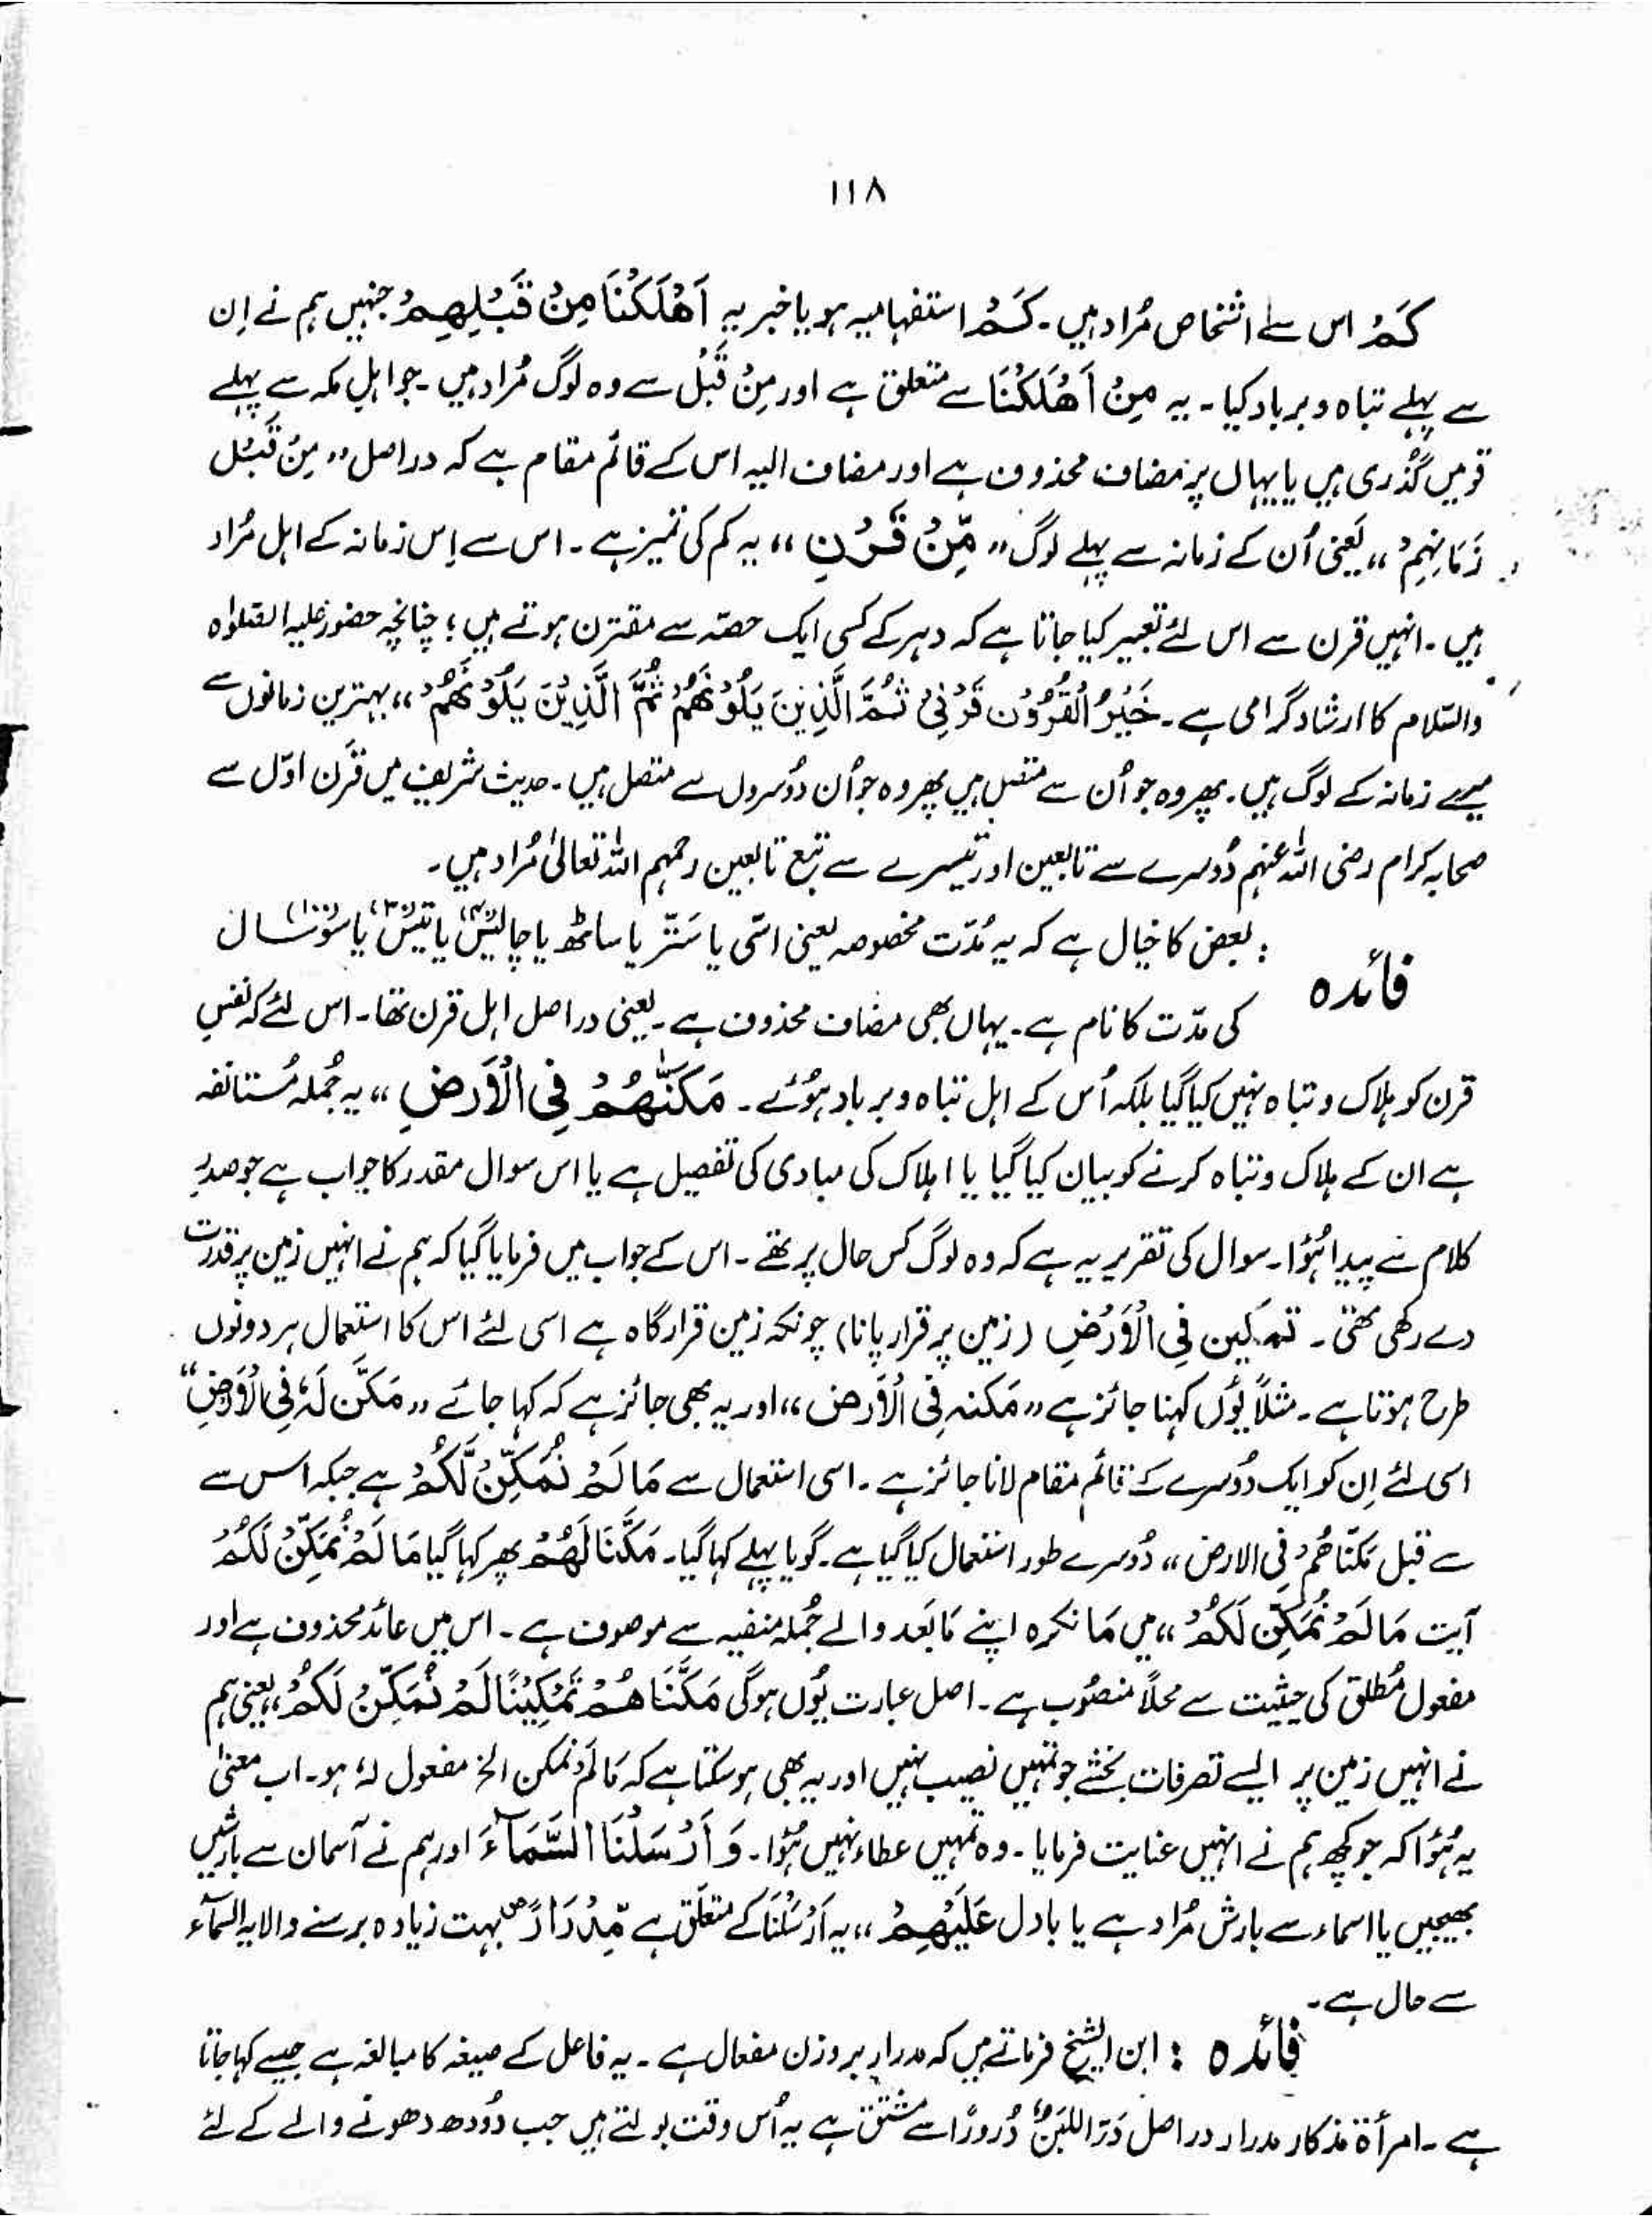 ۱۱۸
كَمْ اس سے اشخاص مُراد ہیں۔ كَمْ استفہامیہ ہو یا خبریہ اَهْلَكْنَا مِنْ قَبْلِهِمْ جنہیں ہم نے اِن
سے پہلے تباہ و برباد کیا۔ یہ مِنْ اَهْلَكْنَا سے متعلق ہے اور مِنْ قَبْل سے وہ لوگ مُراد ہیں۔ جو اہلِ مکہ سے پہلے
قومیں گذری ہیں یا یہاں پر مضاف محذوف ہے اور مضاف الیہ اس کے قائم مقام ہے کہ دراصل ،، مِنْ قَبْل
زَمَانِهِمْ ،، یعنی اُن کے زمانہ سے پہلے لوگ ،، مِّنْ قَرْنٍ ،، یہ کم کی تمیز ہے۔ اس سے اِس زمانہ کے اہل مُراد
ہیں۔ انہیں قرن سے اس لئے تعبیر کیا جاتا ہے کہ دہر کے کسی ایک حصّہ سے مقترن ہوتے ہیں؛ چنانچہ حضور علیہ الصلوٰہ
والسّلام کا ارشاد گرامی ہے۔ خَيْرُ الْقُرُوْن قَرْنِيْ ثُمَّ الَّذِيْنَ يَلُوْنَهُمْ ثُمَّ الَّذِيْنَ يَلُوْنَهُمْ ،، بہترین زمانوں سے
میرے زمانہ کے لوگ ہیں۔ پھر وہ جو اُن سے متصل ہیں پھر وہ جو اُن دُوسروں سے متصل ہیں۔ حدیث شریف میں قَرن اوّل سے
صحابہ کرام رضی اللہ عنہم دُوسرے سے تابعین اور تیسرے سے تبع تابعین رحمہم اللہ تعالیٰ مُراد ہیں۔
فائدہ : بعض کا خیال ہے کہ یہ مُدّت مخصوصہ یعنی اسّی یا سَتّر یا ساٹھ یا چالیس (۴۰) یا تیس (۳۰) یا سَو (۱۰۰) سال
کی مدّت کا نام ہے۔ یہاں بھی مضاف محذوف ہے۔ یعنی دراصل اہل قرن تھا۔ اس لئے کہ نفسِ
قرن کو ہلاک و تباہ نہیں کیا گیا بلکہ اُس کے اہل تباہ و برباد ہوئے۔ مَكَّنّٰهُمْ فِي الْاَرْضِ ،، یہ جُملہ مُستانفہ
ہے ان کے ہلاک و تباہ کرنے کو بیان کیا گیا یا اہلاک کی مبادی کی تفصیل ہے یا اس سوال مقدر کا جواب ہے جو صدرِ
کلام سے پیدا ہُوا۔ سوال کی تقریر یہ ہے کہ وہ لوگ کس حال پر تھے۔ اس کے جواب میں فرمایا گیا کہ ہم نے انہیں زمین پر قدرت
دے رکھی تھی۔ تمکین فِي الْاَرْضِ (زمین پر قرار پانا) چونکہ زمین قرار گاہ ہے اسی لئے اس کا استعمال ہر دونوں
طرح ہوتا ہے۔ مثلاً یُوں کہنا جائز ہے ،، مَکنہ فِی الْاَرض ،، اور یہ بھی جائز ہے کہ کہا جائے ،، مَكَّنَ لَهٗ فِي الْاَرْضِ ،،
اسی لئے اِن کو ایک دُوسرے کے قائم مقام لانا جائز ہے۔ اسی استعمال سے مَا لَمْ نُمَكِّنْ لَّكُمْ ہے جبکہ اس سے
سے قبل مَكَّنَّاهُمْ فی الارض ،، دُوسرے طور استعمال کیا گیا ہے۔ گویا پہلے کہا گیا۔ مَكَّنَّا لَهُمْ پھر کہا گیا مَا لَمْ نُمَكِّنْ لَكُمْ
آیت مَا لَمْ نُمَكِّنْ لَكُمْ ،، میں مَا نکرہ اپنے مَا بَعد والے جُملہ منفیہ سے موصوف ہے۔ اس میں عائد محذوف ہے اور
مفعول مُطلق کی حیثیت سے محلاً منصُوب ہے۔ اصل عبارت یُوں ہوگی مَكَّنَّاهُمْ تَمْكِيْنًا لَمْ نُمَكِّنْ لَكُمْ ،، یعنی ہم
نے انہیں زمین پر ایسے تصرفات بخشے جو تمہیں نصیب نہیں اور یہ بھی ہو سکتا ہے کہ مَا لَمْ نمکن الخ مفعول لہٗ ہو۔ اب معنیٰ
یہ ہُوا کہ جو کچھ ہم نے انہیں عنایت فرمایا۔ وہ تمہیں عطاء نہیں ہُوا۔ وَ اَرْسَلْنَا السَّمَآءَ اور ہم نے آسمان سے بارشیں
بھیجیں یا اسماء سے بارش مُراد ہے یا بادل عَلَيْهِمْ ،، یہ اَرْسَلْنَا کے متعلّق ہے مِّدْرَارًا ص بہت زیادہ برسنے والا یہ السّمآء
سے حال ہے۔
فائدہ : ابن الشیخ فرماتے ہیں کہ مدرار بروزن مفعال ہے۔ یہ فاعل کے صیغہ کا مبالغہ ہے جیسے کہا جاتا
ہے۔ امرأۃ مذکار مدرار دراصل دَرّ اللبَنُ دُرورًا سے مشتق ہے یہ اُس وقت بولتے ہیں جب دُودھ دھونے والے کے لئے